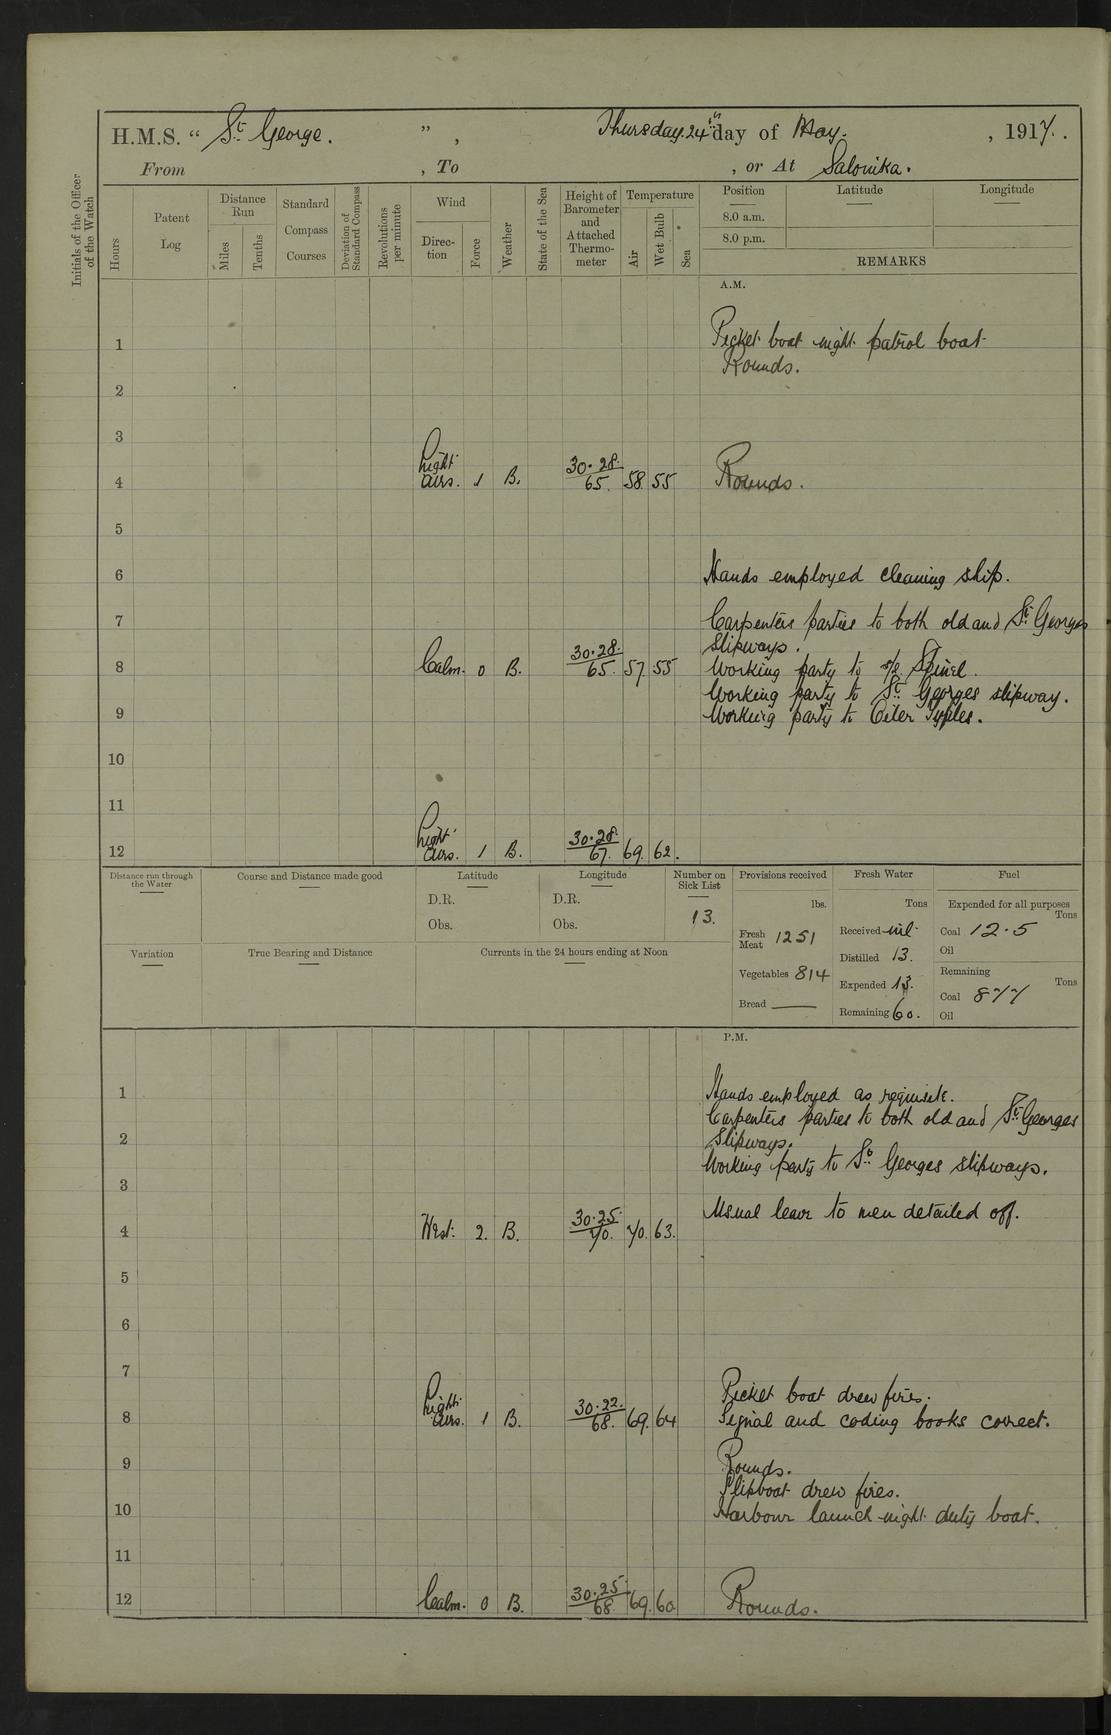 H.M.S. “ St George. ” , Thursday 24th day of May. , 1917.
From , To , or At Salonika.
Initials of the Officer of the Watch
Hours
Patent Log
Distance Run
Miles
Tenths
Standard Compass Courses
Deviation of Standard Compass
Revolutions per minute
Wind
Direction
Force
Weather
State of the Sea
Height of Barometer and Attached Thermometer
Temperature
Air
Wet Bulb
Sea
Position Latitude Longitude
8.0 a.m.
8.0 p.m.
REMARKS
A.M.
1 Picket boat night patrol boat
Rounds.
2
3
4 Light airs. 1 B. 30.28. 65. 58 55 Rounds.
5
6 Hands employed cleaning ship.
7 Carpenters parties to both old and St Georges
Slipways.
8 Calm. 0 B. 30.28. 65. 57 55 Working party to s/s Spinel.
Working party to St Georges slipway.
9 Working party to Oiler
10
11
12 Light airs. 1 B. 30.28. 67. 69. 62.
Distance run through the Water
Course and Distance made good
Latitude
D.R.
Obs.
Longitude
D.R.
Obs.
Number on Sick List
13.
Variation
True Bearing and Distance
Currents in the 24 hours ending at Noon
Provisions received
lbs.
Fresh Meat 1251
Vegetables 814
Bread —
Fresh Water
Tons
Received nil
Distilled 13.
Expended 13.
Remaining 60.
Fuel
Expended for all purposes
Tons
Coal 12.5
Oil
Remaining
Tons
Coal 877
Oil
P.M.
1 Hands employed as requisite.
Carpenters parties to both old and St Georges
2 Slipways.
Working party to St Georges slipways.
3
Usual leave to men detailed off.
4 West. 2. B. 30.25. 70. 70. 63.
5
6
7
Picket boat drew fires.
8 Light airs. 1 B. 30.22. 68. 69. 64 Signal and coding books correct.
9 Rounds.
Slipboat drew fires.
10 Harbour launch night duty boat.
11
12 Calm. 0 B. 30.25. 68 69. 60 Rounds.